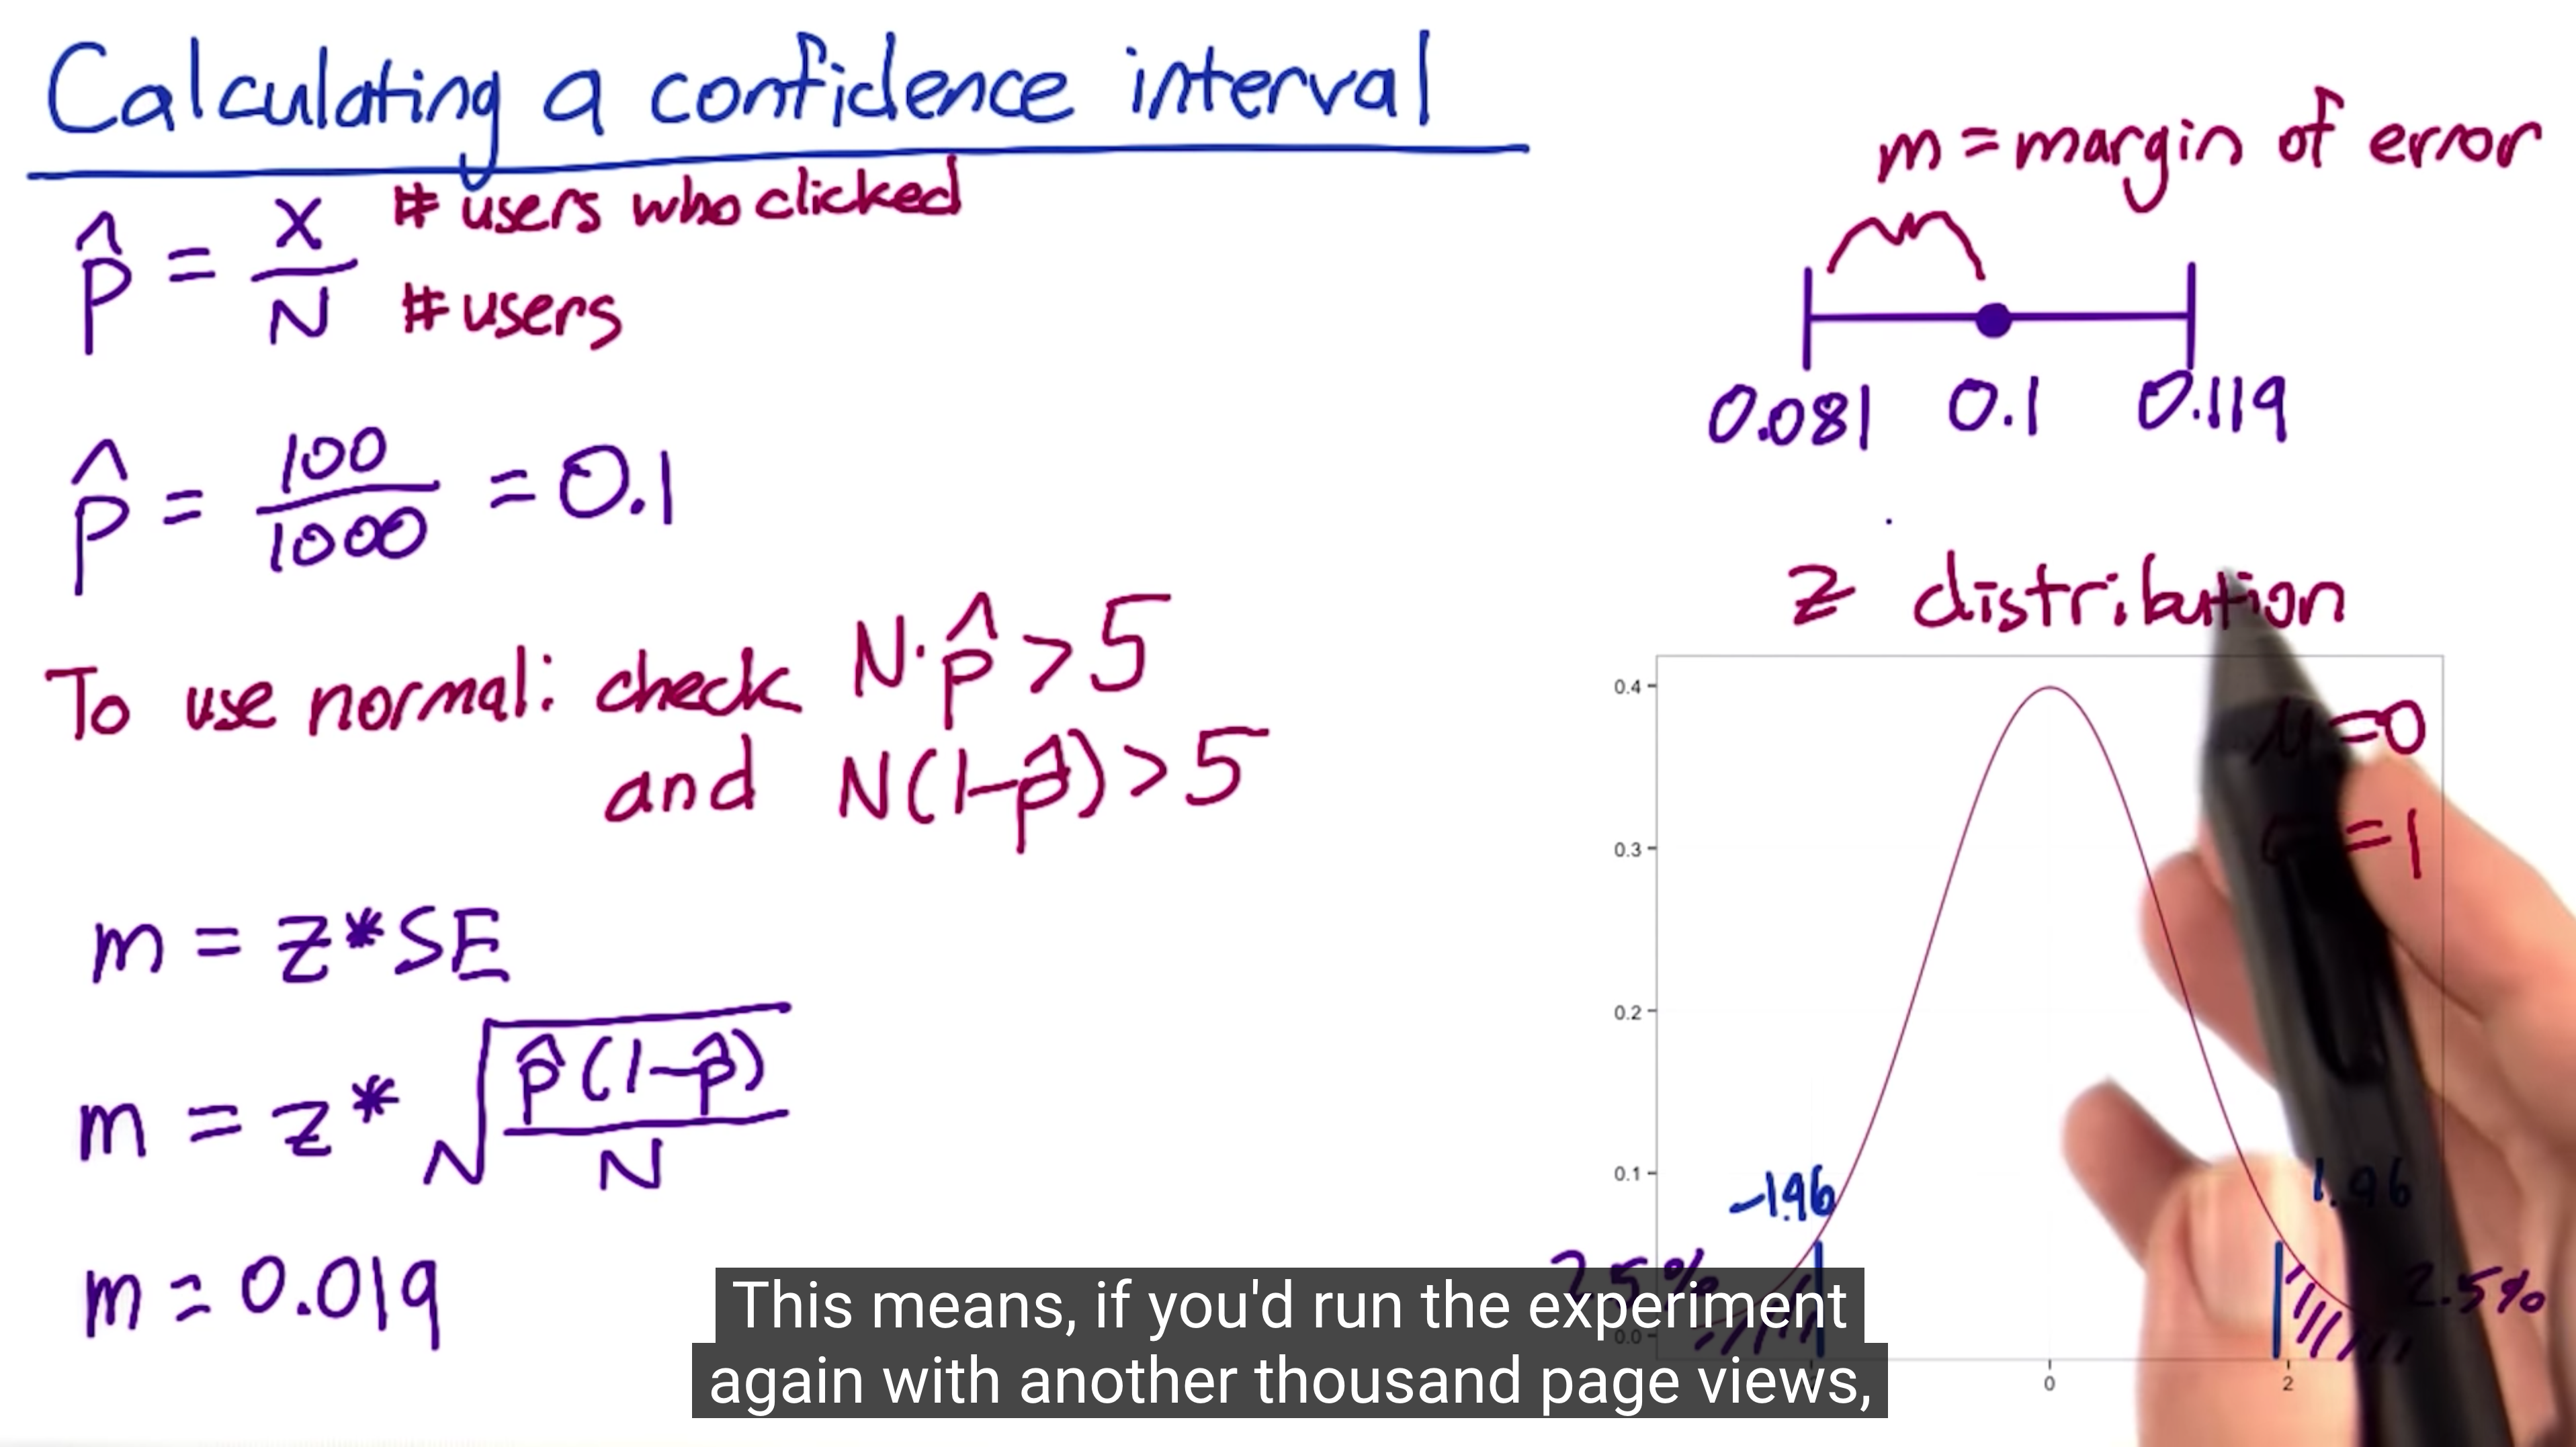 Calculating a confidence interval
p̂ = X / N
# users who clicked
# users
p̂ = 100 / 1000 = 0.1
To use normal: check N·p̂ > 5
and N(1-p̂) > 5
m = z * SE
m = z * √(p̂(1-p̂) / N)
m = 0.019
m = margin of error
0.081 0.1 0.119
z distribution
μ=0
σ=1
0.4
0.3
0.2
0.1
0.0
-1.96
1.96
2.5%
2.5%
0 2
This means, if you'd run the experiment
again with another thousand page views,